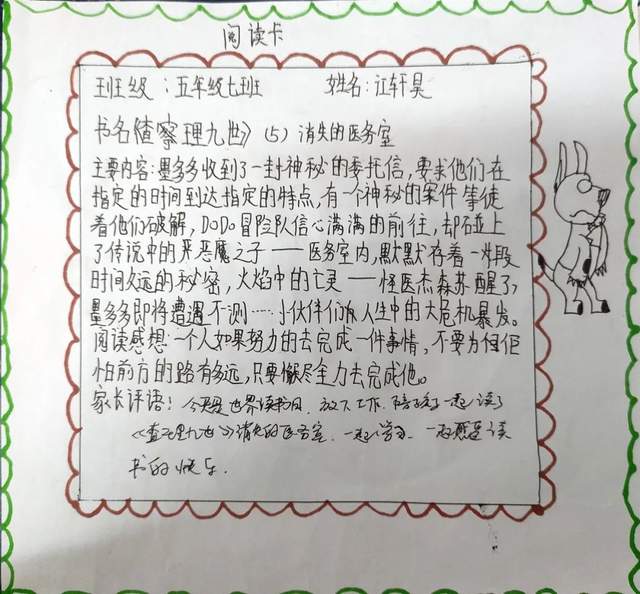 阅读卡
班级：五年级七班 姓名：江轩昊
书名《查理九世》(5) 消失的医务室
主要内容：墨多多收到了一封神秘的委托信，要求他们在
指定的时间到达指定的特点，有一个神秘的案件等徒
着他们破解，DoDo冒险队信心满满的前往，却碰上
了传说中的恶魔之子——医务室内，默默存着一段
时间久远的秘密，火焰中的亡灵——怪医杰森苏醒了，
墨多多即将遭遇不测……小伙伴们人生中的大危机暴发。
阅读感想：一个人如果努力的去完成一件事情，不要
怕前方的路有多远，只要尽全力去完成他。
家长评语：今天是世界读书日，放下工作，陪孩子一起读了
《查理九世》消失的医务室，一起学习，一起感受读
书的快乐.